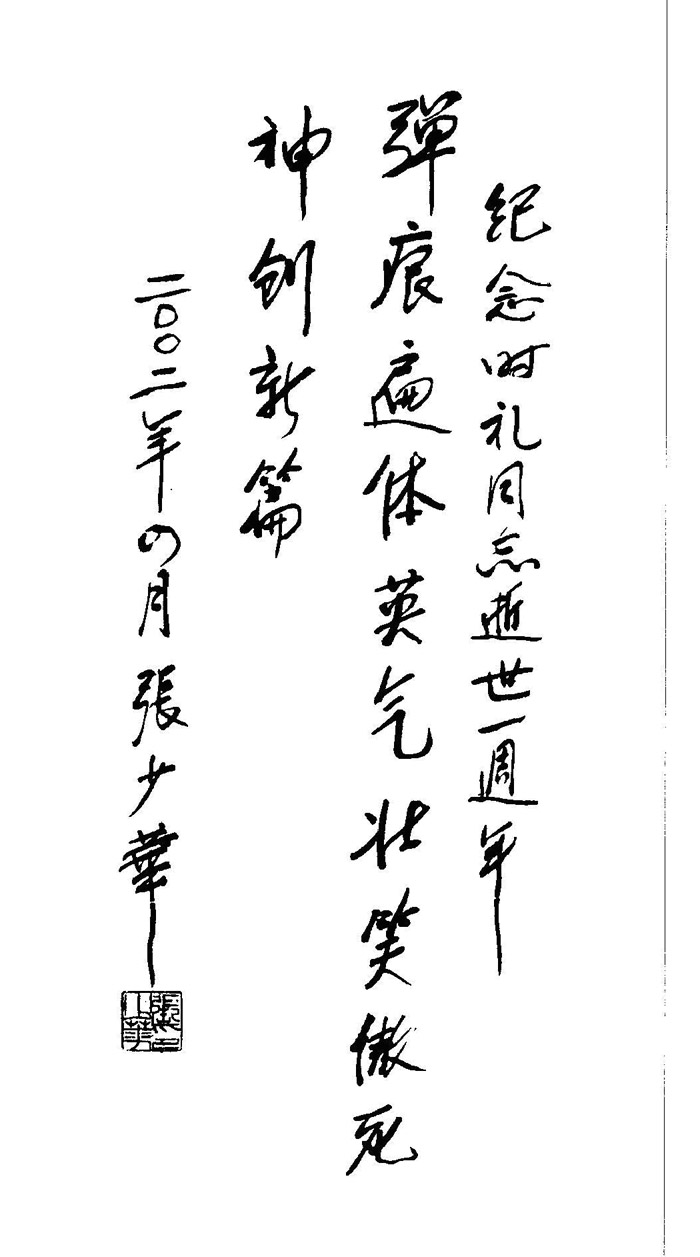 纪念时礼同志逝世一週年
弹痕遍体英气壮笑傲死
神创新篇
二〇〇二年四月 張少華